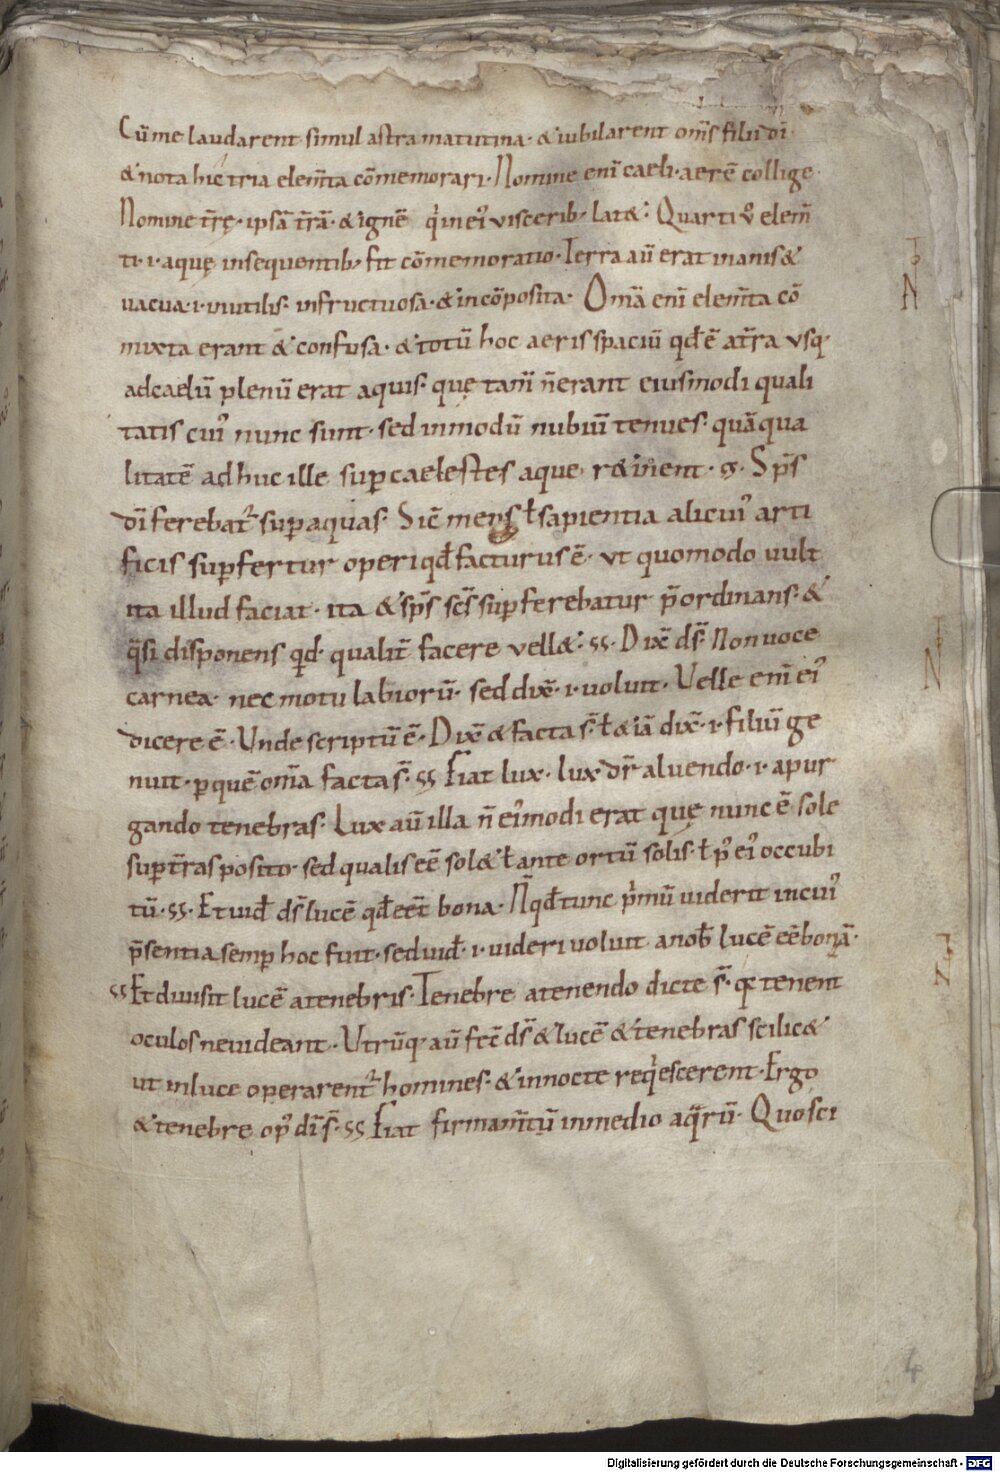 Cū me laudarent simul astra matutina· & iubilarent om̄s filii dī·
& nota hic tria elem̄ta cōmemorari· Nomine enī caeli· aerē collige·
Nomine t̄rę· ipsā t̄rā· & ignē qͥ in eiꝰ viscerib; lat&· Quarti v̊ elem̄
ti· i· aquę insequentib; fit cōmemoratio· Terra aū erat inanis &
vacua· i· inutilis· infructuosa· & incōposita· Om̄a enī elem̄ta cō
mixta erant & confusa· & totū hoc aeris spaciū qđ ē a t̄ra vsq·
ad caelū plenū erat aquis· quę tam̄ n̄ erant eiusmodi quali
tatis cuiꝰ nunc sunt· sed in modū nubiū tenues· quā qua
litatē ad huc ille suꝑ caelestes aque r&inent· Sp̄s
dī ferebatᷣ suꝑ aquas· Sic̄ mens ł sapientia alicuiꝰ arti
ficis suꝑfertur operi qđ facturus ē· ut quomodo uult
ita illud faciat· ita & sp̄s sc̄s suꝑferebatur p̄ordinans· &
qͣsi disponens qd· qualit̄ facere vell&· ss· Dix̄ ds̄· Non uoce
carnea· nec motu labiorū· sed dix̄· i· uoluit· Velle enī eiꝰ
dicere ē· Unde scriptū ē· Dix̄ & facta s̄· ł &iā dix̄· i· filiū ge
nuit· ꝑ quē om̄a facta s̄· ss Fiat lux· lux dr̄ a luendo· i· a pur
gando tenebras· Lux aū illa n̄ eiꝰmodi erat quę nunc ē sole
suꝑ t̄ras posito· sed qualis eē sol& ł ante ortū solis· ł pꝰ eiꝰ occubi
tū· ss· Et uiđ ds̄ lucē qđ eēt bona· N̄ qđ tunc pͥmū uiderit in cuiꝰ
p̄sentia semꝑ hoc fuit· sed uiđ· i· uideri uoluit a nob̄ lucē eē bonā·
ss Et diuisit lucē a tenebris· Tenebre a tenendo dicte s̄· qͣ tenent
oculos ne uideant· Utrūq· aū fec̄ ds̄ & lucē & tenebras scilic&
ut in luce operarentᷣ homines· & in nocte reqͥescerent· Ergo
& tenebre opꝰ dī s̄· ss Fiat firmam̄tū in medio aqͣrū· Quo sci
N
N
N
4
Digitalisierung gefördert durch die Deutsche Forschungsgemeinschaft - DFG